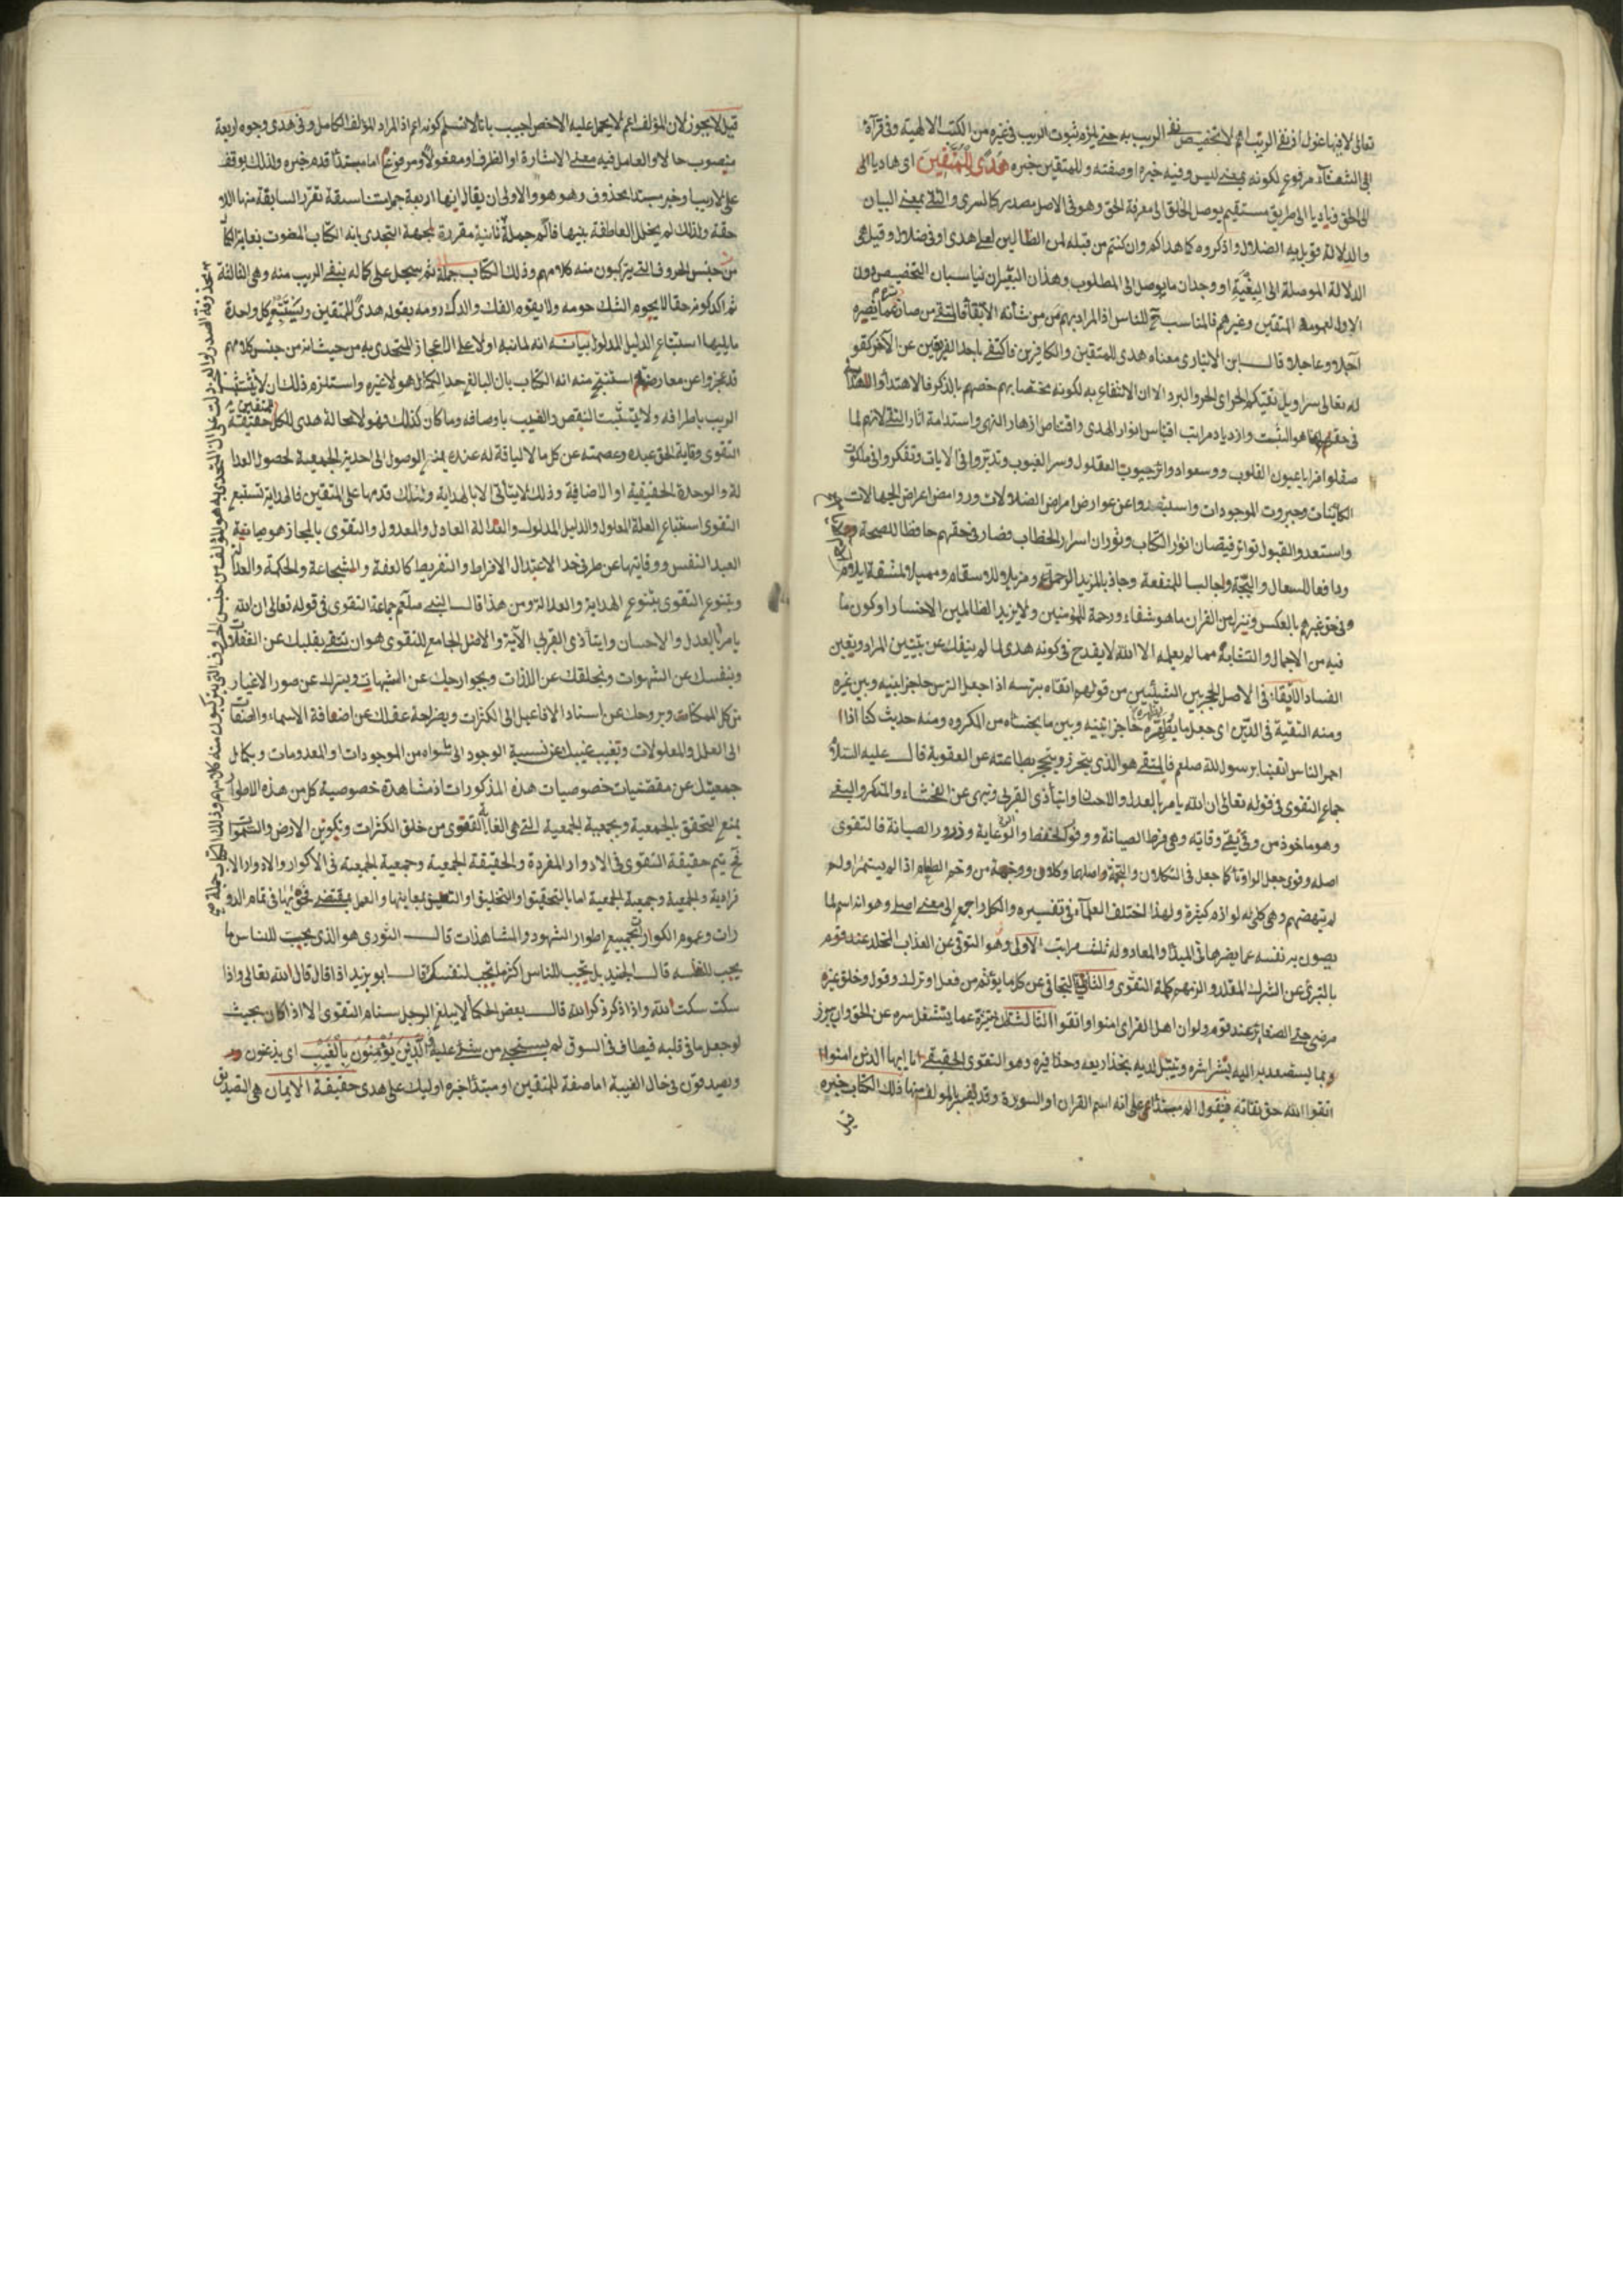 تعالى لا فيها غول اذ نفى الريب اثم لا تخصيص نفى الريب به حتى يلزم ثبوت الريب فى غيره من الكتب الالهية وفى قرآءة
ابى الشعثآء مرفوع لكونه بمعنى ليس وفيه خبره او صفته وللمتقين خبره هُدًى لِلْمُتَّقِينَ اى هاديا الى
الى الحق وناديا الى طريق مستقيم يوصل الخلق الى معرفة الحق وهو فى الاصل مصدر كالسرى والتقى بمعنى البيان
والدلالة قوبل به الضلال واذكروه كما هداكم وان كنتم من قبله لمن الضالين لعلى هدى او فى ضلال وقيل هى
الدلالة الموصلة الى البغية او وجدان ما يوصل الى المطلوب وهذان التفسيران يناسبان التخصيص دون
الاول لعمومه المتقين وغيرهم فالمناسب ح للناس اذ المراد بهم من من شأنه الاتقآء فالمتقى من صان عما يضره
آجلا وعاجلا وقال ابن الانبارى معناه هدى للمتقين والكافرين فاكتفى باحد الفريقين عن الآخر كقو
له تعالى سرابيل تقيكم الحر اى الحر والبرد الا ان الانتفاع به لكونه مختصا بهم خصهم بالذكر فالاهتداء
فى حقهم انما هو التثبت وازدياد مراتب اقتباس انوار الهدى واقتناص ازهار النهى واستدامة آثار التقى لانهم لما
صقلوا مرايا عيون القلوب ووسعوا دوائر جيوب العقول وسر الغيوب وتدبروا فى الايات وتفكروا فى ملكوت
الكائنات وجبروت الموجودات واستبعدوا عن عوارض امراض الضلالات وروامض اعراض الجهالات
واستعدوا لقبول تواتر فيضان انوار الكتاب ونوران اسرار الخطاب فصار فى حقهم حافظا للصحة
ودافعا للسعال والبحة وجالبا للمنفعة وجاذبا لمزيد الرحمة ومزيلا للاسقام ومميلا للمشقة
وفى حق غيرهم بالعكس وننزل من القران ما هو شفاء ورحمة للمؤمنين ولا يزيد الظالمين الا خسارا وكون ما
فيه من الاجمال والتشابه مما لم يعلمه الا الله لا يقدح فى كونه هدى لما لم ينفك عن تبيين المراد وتعين
الفساد الاتقاء فى الاصل الحجز بين الشيئين من قولهم اتقاه بترسه اذا جعل الترس حاجزا بينه وبين غيره
ومنه التقية فى الدين اى جعل ما يظهره حاجزا بينه وبين ما يخشاه من المكروه ومنه حديث كنا اذا
احمر الناس اتقينا برسول الله صلعم فالمتقى هو الذى يتحرز ويتحجز بطاعته عن العقوبة قال عليه السلام
جماع التقوى فى قوله تعالى ان الله يامر بالعدل والاحسان وايتاء ذى القربى وينهى عن الفحشاء والمنكر والبغى
وهو ماخوذ من وقى يقى وقاية وهى فرط الصيانة ووفور الحفظ والرعاية فالتقوى
اصله وقوى جعل الواو تاء كما جعل فى التكلان والتخمة واصلهما وكلان ووخمة من وخم الطعام اذا لم يستمرا ولم
ولهذا اختلف العلمآء فى تفسيره والكل راجع الى معنى اصلى وهو انه اسم لما
يصون به نفسه عما يضرها فى المبدا والمعاد وله ثلث مراتب الاولى وهو التوقى عن العذاب المخلد عند قوم
بالتبرى عن الشرك المقلد والزمهم كلمة التقوى والثانى التجافى عن كل ما يؤثم من فعل او ترك وقول وخلق غير
مرضى حتى الصغائر عند قوم ولو ان اهل القرى امنوا واتقوا الثالث التنزه عما يشغل سره عن الحق
ويتبتل لديه وهو التقوى الحقيقى يا ايها الذين امنوا
اتقوا الله حق تقاته فنقول الم مبتدا على انه اسم القران او السورة وقد يفسر بالمولف منها ذلك الكتاب خبره
قيل
قيل لا يجوز لان المؤلف اعم لا يحمل عليه الاخص اجيب بانا لا نسلم كونه اعم اذ المراد المؤلف الكامل وفى هدى وجوه اربعة
منصوب حالا والعامل فيه معنى الاشارة او الظرف او مفعولا ومرفوع اما مبتدأ قدم خبره ولذلك يوقف
على لا ريب او خبر مبتدا محذوف وهو هو والاولى ان يقال انها اربعة جملات متناسقة تقرر السابقة منها اللا
حقة ولذلك لم يتخلل العاطفة بينها فالم جملة ثانية مقررة لجهة التحدى بانه الكتاب المنعوت بغاية الكمال
من جنس الحروف التى يتركبون منه كلامهم وذلك الكتاب جملة ثم سجل على كماله بنفى الريب منه وهى الثالثة
ثم اكد كونه حقا لا يحوم الشك حومه بقوله هدى للمتقين ويستتبع كل واحدة
ما يليها استتباع الدليل المدلول بيانه انه لما نبه اولا على الاعجاز المتحدى به من حيث انه من جنس كلامهم
قد عجزوا عن معارضتهم استنتج منه انه الكتاب بان البالغ حد الكمال هو لا غيره واستلزم ذلك ان لا يتشبث
الريب باطرافه ولا يتثبت النقص والعيب باوصافه وما كان كذلك فهو لا محالة هدى للكل حقيقة للمتقين
التقوى وقاية الحق عبده وعصمته عن كل ما لا لياقة له عنده يمنع الوصول الى احدية الجمعية لحصول العدا
لة والوحدة الحقيقية او الاضافية وذلك لا يتأتى الا بالهداية ولذلك قدمها على المتقين فالهداية تستتبع
التقوى استتباع العلة المعلول والدليل المدلول والعدالة العادل والمعدول والتقوى بالمجاز هو صيانة
العبد النفس ووقايتها عن طرفى حد الاعتدال الافراط والتفريط كالعفة والشجاعة والحكمة والعدالة
ويتنوع التقوى بتنوع الهداية والعدالة ومن هذا قال النبى صلعم جماعة التقوى فى قوله تعالى ان الله
يامر بالعدل والاحسان وايتآء ذى القربى الآية والاصل الجامع للتقوى هو ان تتقى بقلبك عن الغفلات
وبنفسك عن الشهوات وبحلقك عن اللذات وبجوارحك عن الشبهات وبسرك عن صور الاغيار
من كل الممكنات وبروحك عن اسناد الافاعيل الى الكثرات وبصراحة عقلك عن اضافة الاسماء والصفات
الى العلل والمعلولات وبغيب غيبك عن نسبة الوجود الى سواه من الموجودات والمعدومات وبكمال
جمعيتك عن مقتضيات خصوصيات هذه المذكورات اذ مشاهدة خصوصية كل من هذه الاطوار
يمنع التحقق بالجمعية وبجمعية الجمعية التى هى الغاية القصوى من خلق الكثرات وتكوين الارض والسموات
ح يتم حقيقة التقوى فى الادوار المفردة والحقيقة الجمعية وجمعية الجمعية فى الاكوار والادوار الا
فرادية والجمعية وجمعية الجمعية اما بالتحقيق او التخليق او التعليق لمعانيها والعمل بمقتضى فى تمام الدو
رات وعموم الكوار بجميع اطوار الشهود والمشاهدات قال النورى هو الذى يحب للناس ما
يحب لنفسه قال الجنيد بل يحب للناس اكثر ما تحب لنفسك قال ابو يزيد اذا قال قال لله تعالى واذا
سكت سكت لله واذا ذكر ذكر الله قال بعض الحكما لا يبلغ الرجل سنام التقوى الا اذا كان بحيث
لو جعل ما فى قلبه فيطاف فى السوق لم يستحى من شئ عليه الَّذِينَ يُؤْمِنُونَ بِالْغَيْبِ اى يذعنون
ويصدقون فى حال الغيبة اما صفة للمتقين او مبتدأ خبره اوليك على هدى حقيقة الايمان هى التصديق
محذوفة الصدر دلت على ان المتحدى به هو المؤلف من جنس الحروف التى يتركبون منه كلامهم وذلك الكتاب جملة